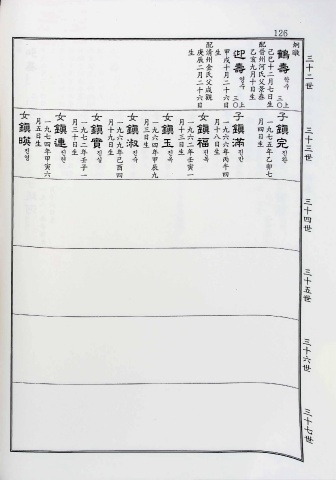 126
三十二世
三十三世
三十四世
三十五世
三十六世
三十七世
鶴壽 학수
三〇上
己巳十二月七日生
配晋州河氏父景春
乙亥九月十日生
迎壽 영수
三〇上
甲戌十月二十六日
生
配清州金氏父成觀
庚辰二月二十六日
生
子鎭完 진완
一九七五年乙卯七
月四日生
子鎭滿 진만
一九六六年丙午四
月十八日生
女鎭福 진복
一九六二年壬寅
月十三日生
女鎭玉 진옥
一九六四年甲辰九
月三日生
女鎭淑 진숙
一九六九年己酉四
月十九日生
女鎭實 진실
一九七二年壬子一
月三十日生
女鎭連 진연
一九七四年甲寅六
月五日生
女鎭暎 진영